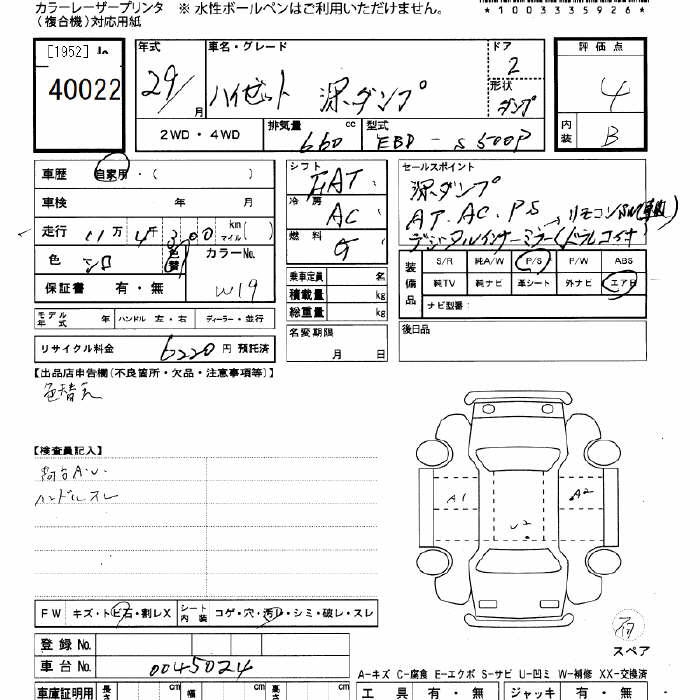 カラーレーザープリンタ ※ 水性ボールペンはご利用いただけません。
（複合機）対応用紙
*1003335926*
[1952]
40022
年式 車名・グレード ドア 評価点
29/ 月 ハイゼット 深ダンプ 2 4
形状 ダンプ
2WD・4WD 排気量 660 cc 型式 EBD-S500P 内装 B
車歴 自家用・（ ）
車検 年 月
走行 11万4千300 km マイル（ ）
色 シロ 色替 カラーNo. W19
保証書 有・無
モデル年式 年 ハンドル 左・右 ディーラー・並行
リサイクル料金 6220 円 預託済
シフト FAT
冷房 AC
燃料 G
乗車定員 名
積載量 kg
総重量 kg
名変期限
月 日
セールスポイント
深ダンプ
AT.AC.PS
デジタルインナーミラー（ドラレコ付
装備品 S/R 純A/W P/S P/W ABS
純TV 純ナビ 革シート 外ナビ エアB
ナビ型番：
後日品
【出品店申告欄(不良箇所・欠品・注意事項等)】
色替え
【検査員記入】
ハンドルスレ
A1 U2 A2
FW キズ・トビ石・割レX シート内装 コゲ・穴・汚レ・シミ・破レ・スレ
スペア
登録 No.
車台 No. 0045024
A-キズ C-腐食 E-エクボ S-サビ U-凹ミ W-補修 XX-交換済
車庫証明用 長さ cm 幅 cm cm 工具 有・無 ジャッキ 有・無